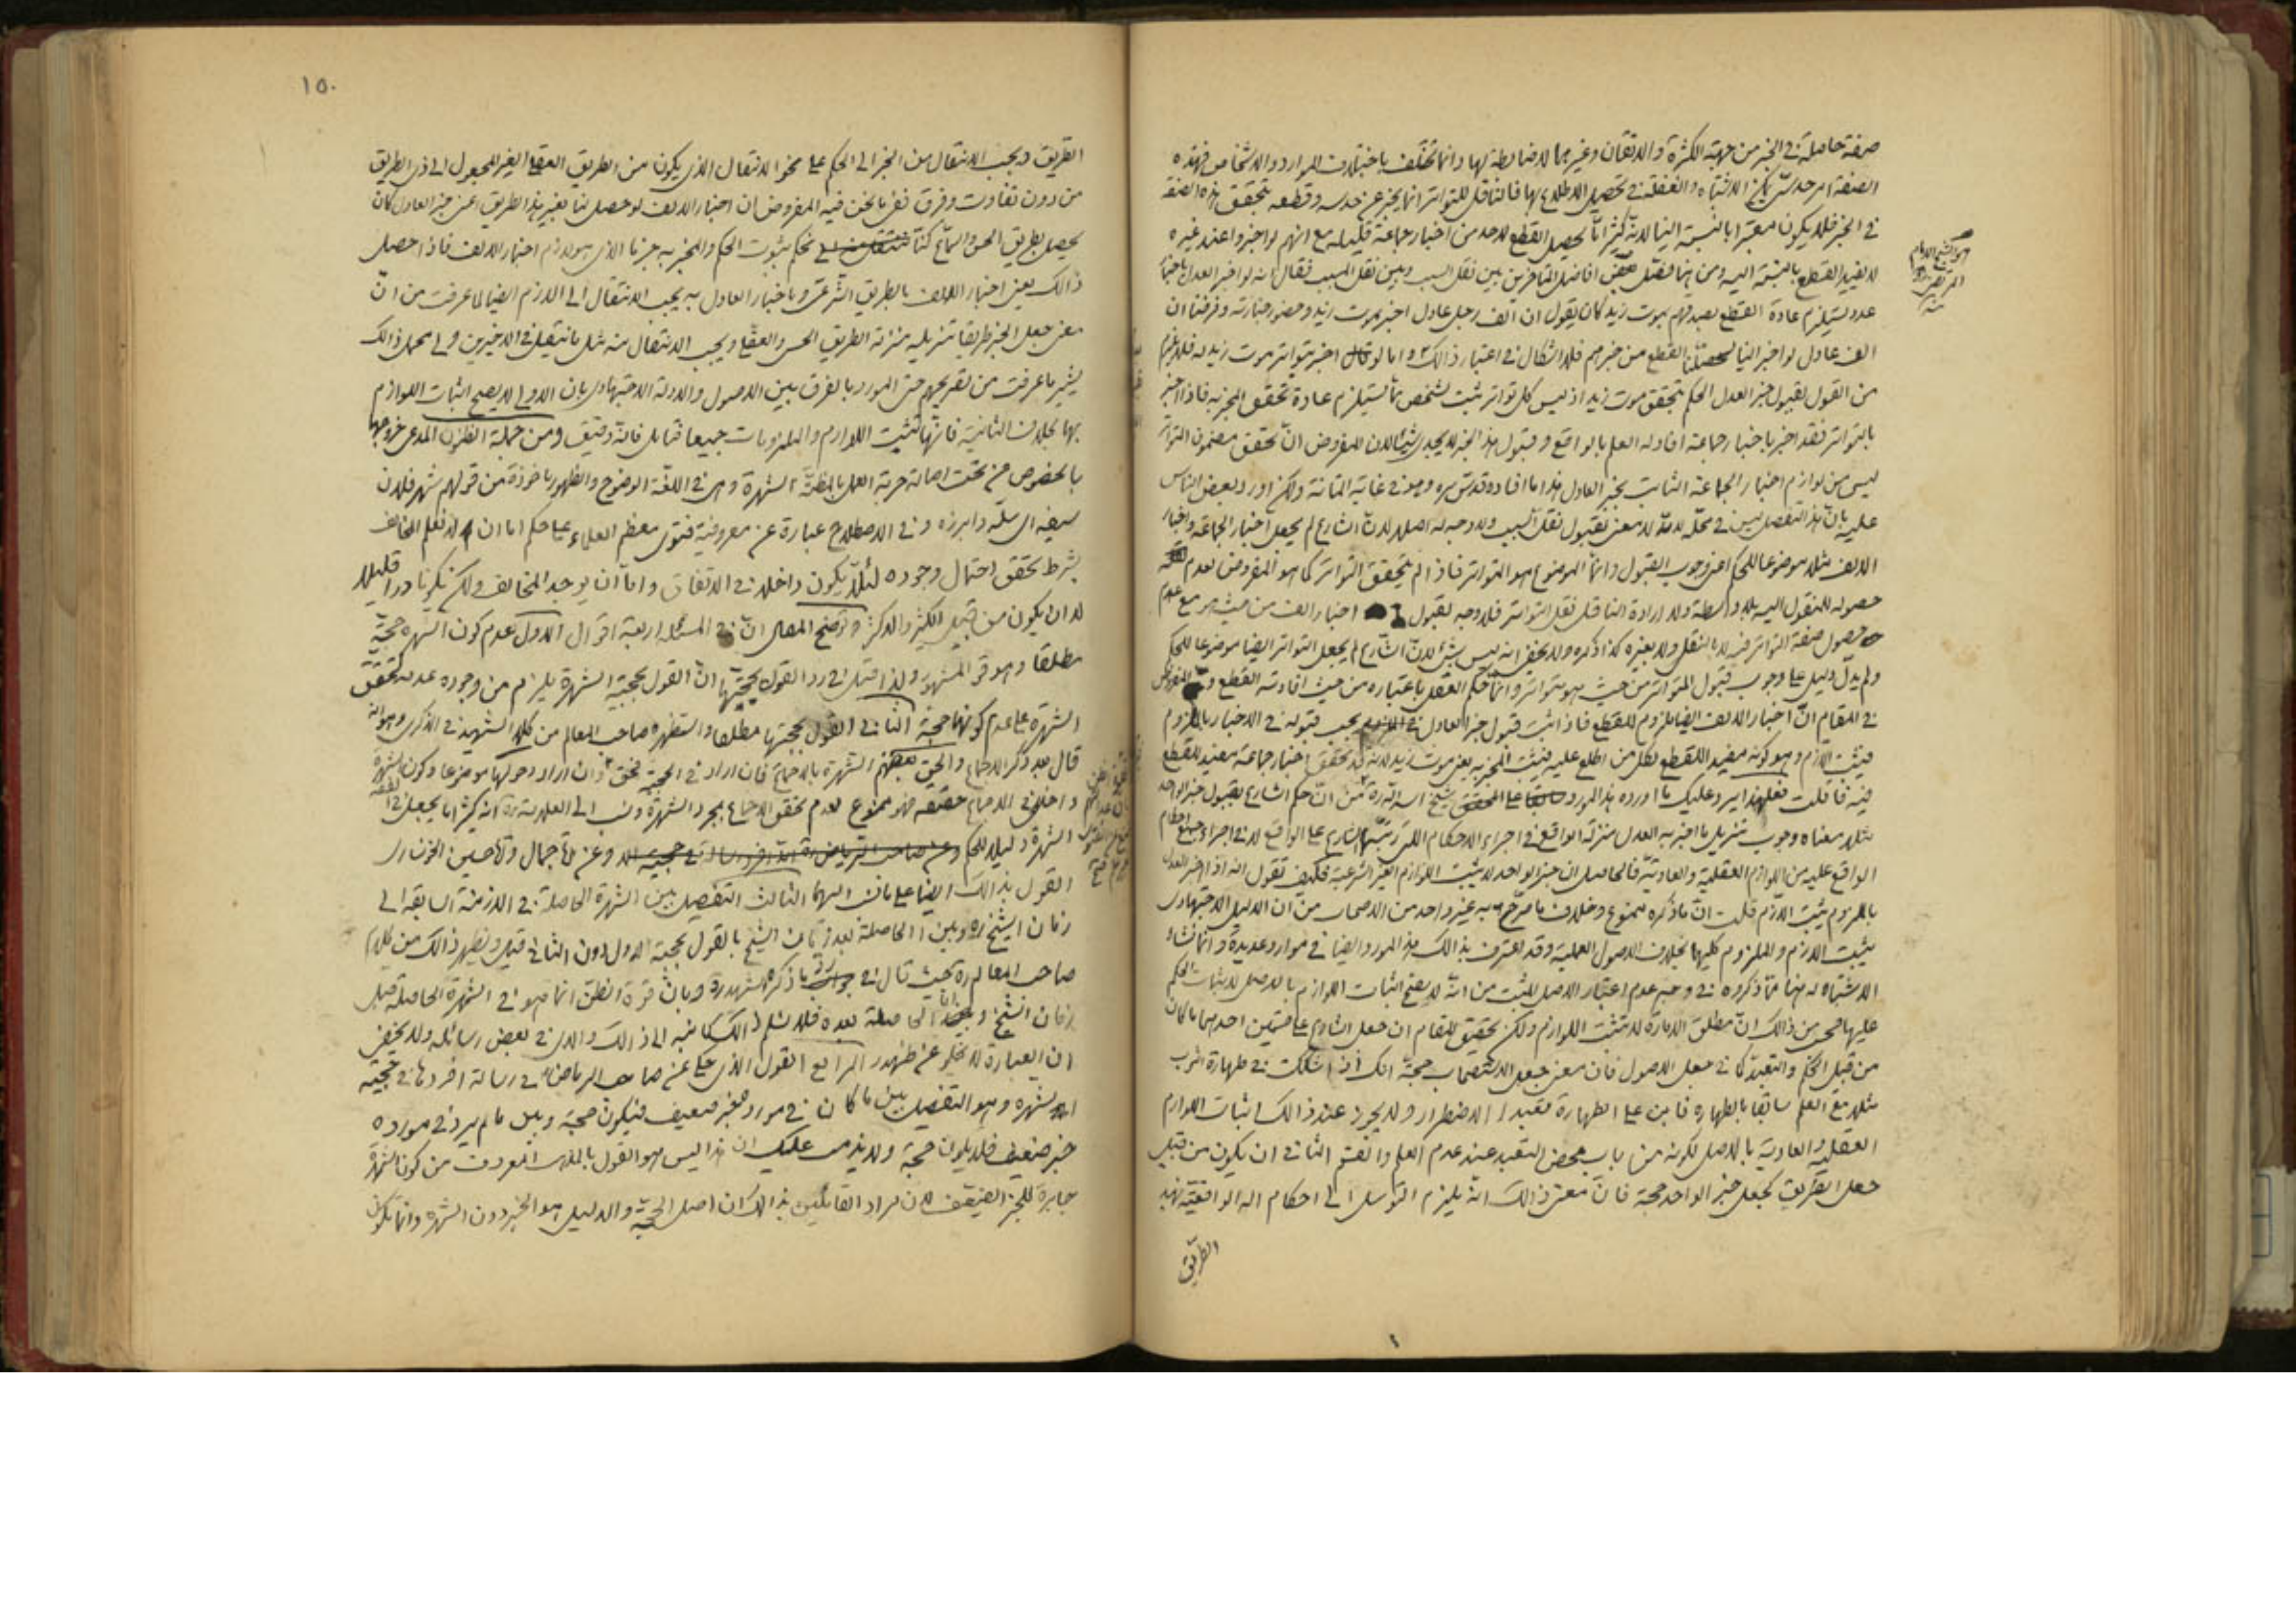 صفة حاصلة في الخبر من جهة الكثرة والاتقان وغيرهما لا ضابطة لها وانما تختلف باختلاف الموارد والاشخاص فهذه
الصفة امر حدسي يمكن الاشتباه والغفلة في تحصيل الاطلاع بها فالناقل للتواتر انما يخبر عن حدسه وقطعه بتحقق هذه الصفة
في الخبر فلا يكون معتبرا بالنسبة الينا لانه كثيرا ما يحصل القطع لاحد من اخبار جماعة قليلة مع انهم لو اخبروا عند غيره
لا يفيد القطع بالنسبة اليه ومن هنا فصّل بعض افاضل المتاخرين بين نقل السبب وبين نقل المسبب فقال انه لو اخبر العدل باخبار
عدد يستلزم عادة القطع بصدقهم بموت زيد كان يقول ان الف رجل عادل اخبر بموت زيد وحضور جنازته وفرضنا ان
الف عادل لو اخبر الينا لحصل لنا القطع من خبرهم فلا اشكال في اعتبار ذالك واما لو قال اخبر بتواتر موت زيد له فلا يلزم
من القول بقبول خبر العدل الحكم بتحقق موت زيد اذ ليس كل تواتر ثبت لشخص مما يستلزم عادة تحقق المخبر به فاذا اخبر
بالتواتر فقد اخبر باخبار جماعة افاد له العلم بالواقع وقبول هذا الخبر لا يجدي شيئا لان المفروض ان تحقق مضمون المتواتر
ليس من لوازم اخبار الجماعة الثابت بخبر العادل هذا ما افاده قدس سره وهو في غاية المتانة ولكن اورد بعض الناس
عليه بان هذا التفصيل ليس في محله لانه لا معنى لقبول نقل السبب ولا وجه له اصلا لان الشارع لم يجعل اخبار الجماعة واخبار
الالف مثلا موضوعا للحكم اعني وجوب القبول وانما الموضوع هو التواتر فاذا لم يتحقق التواتر كما هو المفروض لعدم
حصوله للمنقول اليه بلا واسطة ولا ارادة الناقل نقل التواتر فلا وجه لقبول اخبار الف من حيث هو مع عدم
حصول صفة التواتر فيه لا بالنقل ولا بغيره كذا ذكره ولا يخفى انه ليس بشئ لان الشارع لم يجعل التواتر ايضا موضوعا للحكم
ولم يدل دليل على وجوب قبول المتواتر من حيث هو متواتر وانما حكم العقل باعتباره من حيث افادته القطع والمفروض
في المقام ان اخبار الالف ايضا ملزوم للقطع فاذا ثبت قبول خبر العادل يجب قبوله في الاخبار بالملزوم
فيثبت اللازم وهو كونه مفيدا للقطع لكل من اطلع عليه فيثبت المخبر به يعني موت زيد لانه قد تحقق اخبار جماعة مفيد للقطع
فيه فان قلت فعلى هذا يرد عليك ما اورده هذا المورد شيخ اساتدة من ان حكم الشارع بقبول خبر الواحد
مثلا معناه وجوب تنزيل ما اخبر به العدل منزلة الواقع في اجراء الاحكام التي رتبها الشارع على الواقع لا في اجراء جميع احكام
الواقع عليه من اللوازم العقلية والعادية فالحاصل ان خبر الواحد لا يثبت اللوازم الغير الشرعية فكيف تقول انه اذا اخبر العدل
بالملزوم يثبت اللازم قلت ان ما ذكره ممنوع وخلاف ما صرح به غير واحد من الاصحاب من ان الدليل الاجتهادي
يثبت اللازم والملزوم كليهما بخلاف الاصول العملية وقد اعترف بذالك هذا المورد ايضا في موارد عديدة وانما نشاء
الاشتباه له هنا مما ذكروه في وجه عدم اعتبار الاصل المثبت من انه لا يصح اثبات اللوازم بالاصل لاثبات الحكم
عليها فحسب من ذالك ان مطلق الامارة لا تثبت اللوازم ولكن تحقيق المقام ان جعل الشارع على قسمين احدهما ما كان
من قبيل الحكم والتعبد كما في جعل الاصول فان معنى جعل الاستصحاب حجة انك اذا شككت في طهارة الثوب
مثلا مع العلم سابقا بالطهارة فابن على الطهارة تعبدا الاضطرار ولا يجوز عند ذالك اثبات اللوازم
العقلية والعادية بالاصل لكونه من باب محض التعبد عند عدم العلم والقسم الثاني ان يكون من قبيل
جعل الطريق كجعل خبر الواحد حجة فان معنى ذالك انه يلزم التوسل الى احكام الله الواقعية بهذا
الطريق
هو الشيخ الامام
المرتضى
منه
١٥٠
الطريق ويجب الانتقال من الخبر الى الحكم على نحو الانتقال الذي يكون من الطريق العقلي الغير المجعول الى ذي الطريق
من دون تفاوت وفرق ففي ما نحن فيه المفروض ان اخبار الالف لو حصل لنا بغير هذا الطريق اعني خبر العادل كان
يحصل بطريق الحس والسماع كنا نحكم بثبوت الحكم والمخبر به جزما الذي هو لازم اخبار الالف فاذا حصل
ذالك يعني اخبار الالف بالطريق الشرعي وباخبار العادل به يجب الانتقال الى اللازم ايضا لما عرفت من ان
معنى جعل الخبر طريقا تنزيله منزلة الطريق الحسي والعقلي ويجب الانتقال منه مثل ما ينتقل في الاخيرين والى مجمل ذالك
يشير ما عرفت من تصريحهم حتى المورد بالفرق بين الاصول والادلة الاجتهادي بان الاولى لا يصح اثبات اللوازم
بها بخلاف الثانية فانها تثبت اللوازم والملزومات جميعا فتامل فانه دقيق ومن جملة الظنون المدعى خروجها
بالخصوص من تحت اصالة حرمة العمل بالمظنة الشهرة وهي في اللغة الوضوح والظهور ماخوذة من قولهم شهر فلان
سيفه اي سلّه وابرزه وفي الاصطلاح عبارة عن معروفية فتوى معظم العلماء على حكم اما ان لا نعلم المخالف
بشرط تحقق احتمال وجوده لئلا يكون داخلا في الاتفاق واما ان يوجد المخالف ولكن يكون نادرا قليلا
لا ان يكون من قبيل الكثير والاكثر وتوضيح المقال ان في المسئلة اربعة اقوال الاول عدم كون الشهرة حجة
مطلقا وهو قول المشهور ولذا قيل في رد القول بحجيتها ان القول بحجية الشهرة يلزم من وجوده عدمه لتحقق
الشهرة على عدم كونها حجة الثاني القول بحجيتها مطلقا واستظهره صاحب المعالم من كلام الشهيد في الذكرى وهو انه
قال بعد ذكر الاجماع والحق بعضهم الشهرة بالاجماع فان اراد في الحجية فحق وان اراد دخولها موضوعا وكون الشهرة
داخلة في الاجماع حقيقة فهو ممنوع لعدم تحقق الاجماع بمجرد الشهرة ونسب الى العلامة انه كثيرا ما يجعل في
الشهرة دليلا للحكم وعن الاجمال وقا حسين الخونساري
القول بذالك ايضا على ما نسب اليهما الثالث التفصيل بين الشهرة الحاصلة في الازمنة السابقة الى
زمان الشيخ ره وبين الحاصلة بعد زمان الشيخ بالقول بحجية الاول دون الثاني قيل ويظهر ذالك من كلام
صاحب المعالم ره حيث قال في ما ذكره الشهيد ره وبان قوة الظن انما هو في الشهرة الحاصلة قبل
زمان الشيخ الحاصلة بعده فلا نسلم ذالك كما نبه الى ذالك والدي في بعض رسائله ولا يخفى
ان العبارة لا يخلو عن ظهور الرابع القول الذي حكي عن صاحب الرياض في رسالة افردها في حجية
الشهرة وهو التفصيل بين ما كان في مورد خبر ضعيف فيكون حجة وبين ما لم يرد في مورده
خبر ضعيف فلا يكون حجة ولا يذهب عليك ان هذا ليس هو القول بالمذهب المعروف من كون الشهرة
جابرة للخبر الضعيف لان مراد القائلين بذالك ان اصل الحجية والدليل هو الخبر دون الشهرة وانما تكون